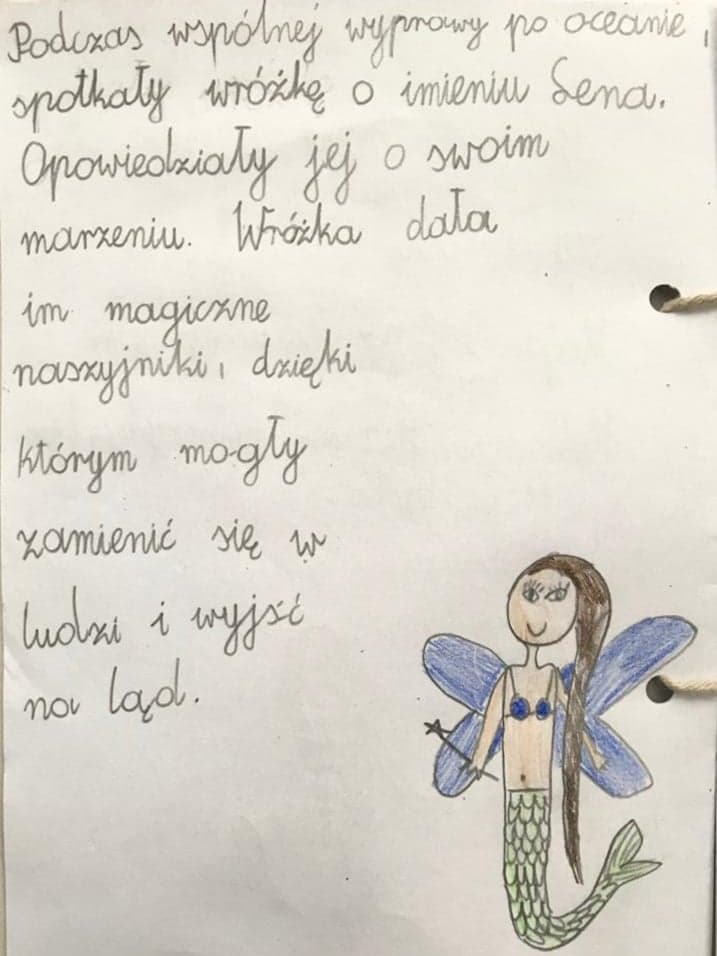 Podczas wspólnej wyprawy po oceanie,
spotkały wróżkę o imieniu Lena.
Opowiedziały jej o swoim
marzeniu. Wróżka dała
im magiczne
naszyjniki, dzięki
którym mogły
zamienić się w
ludzi i wyjść
na ląd.